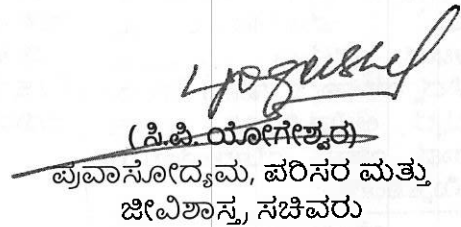 (ಸಿ.ಪಿ. ಯೋಗೇಶ್ವರ)
ಪ್ರವಾಸೋದ್ಯಮ, ಪರಿಸರ ಮತ್ತು
ಜೀವಿಶಾಸ್ತ್ರ ಸಚಿವರು